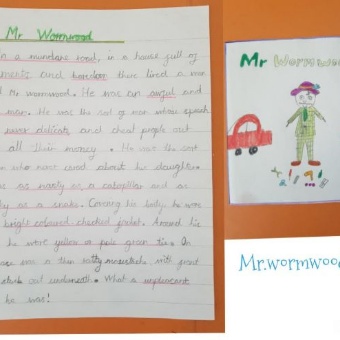 Mr Wormwood
in a mundane road, in a house full of
and boredom there lived a man
Mr Wormwood. He was an awful and
man. He was the sort of man whose speech
never delicate and cheat people out
all their money. He was the sort
man who never cared about his daughter.
as nasty as a caterpillar and as
as a snake. Covering his body, he wore
bright coloured checked jacket. Around his
he wore yellow or pale green tie. On
was a thin ratty moustache with great
underneath. What a unpleasant
he was!
Mr Wormwoo
Mr.wormwood